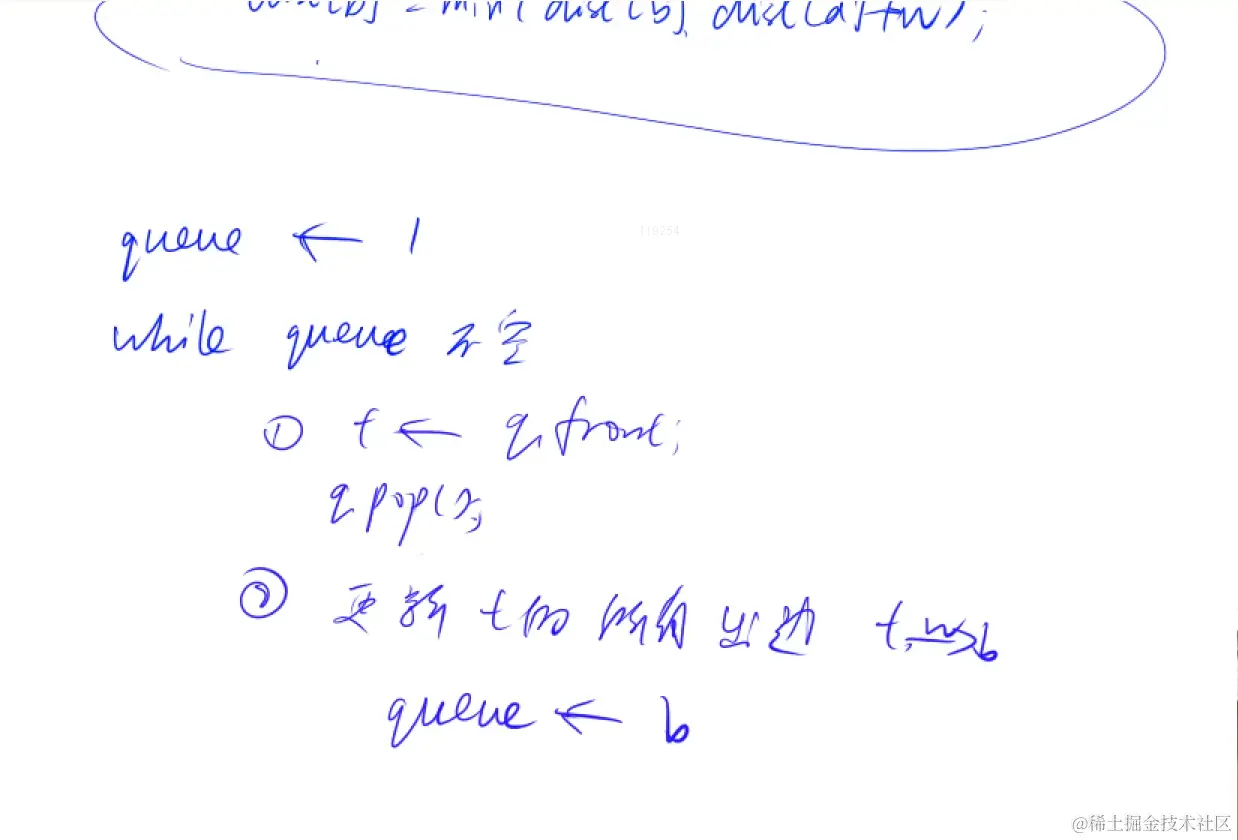 dist[b] = min(dist[b], dist[a]+w);
queue ← 1
119254
while queue 不空
① t ← q.front;
q.pop();
② 更新 t的 所有 出边 t, w→b
queue ← b
@稀土掘金技术社区